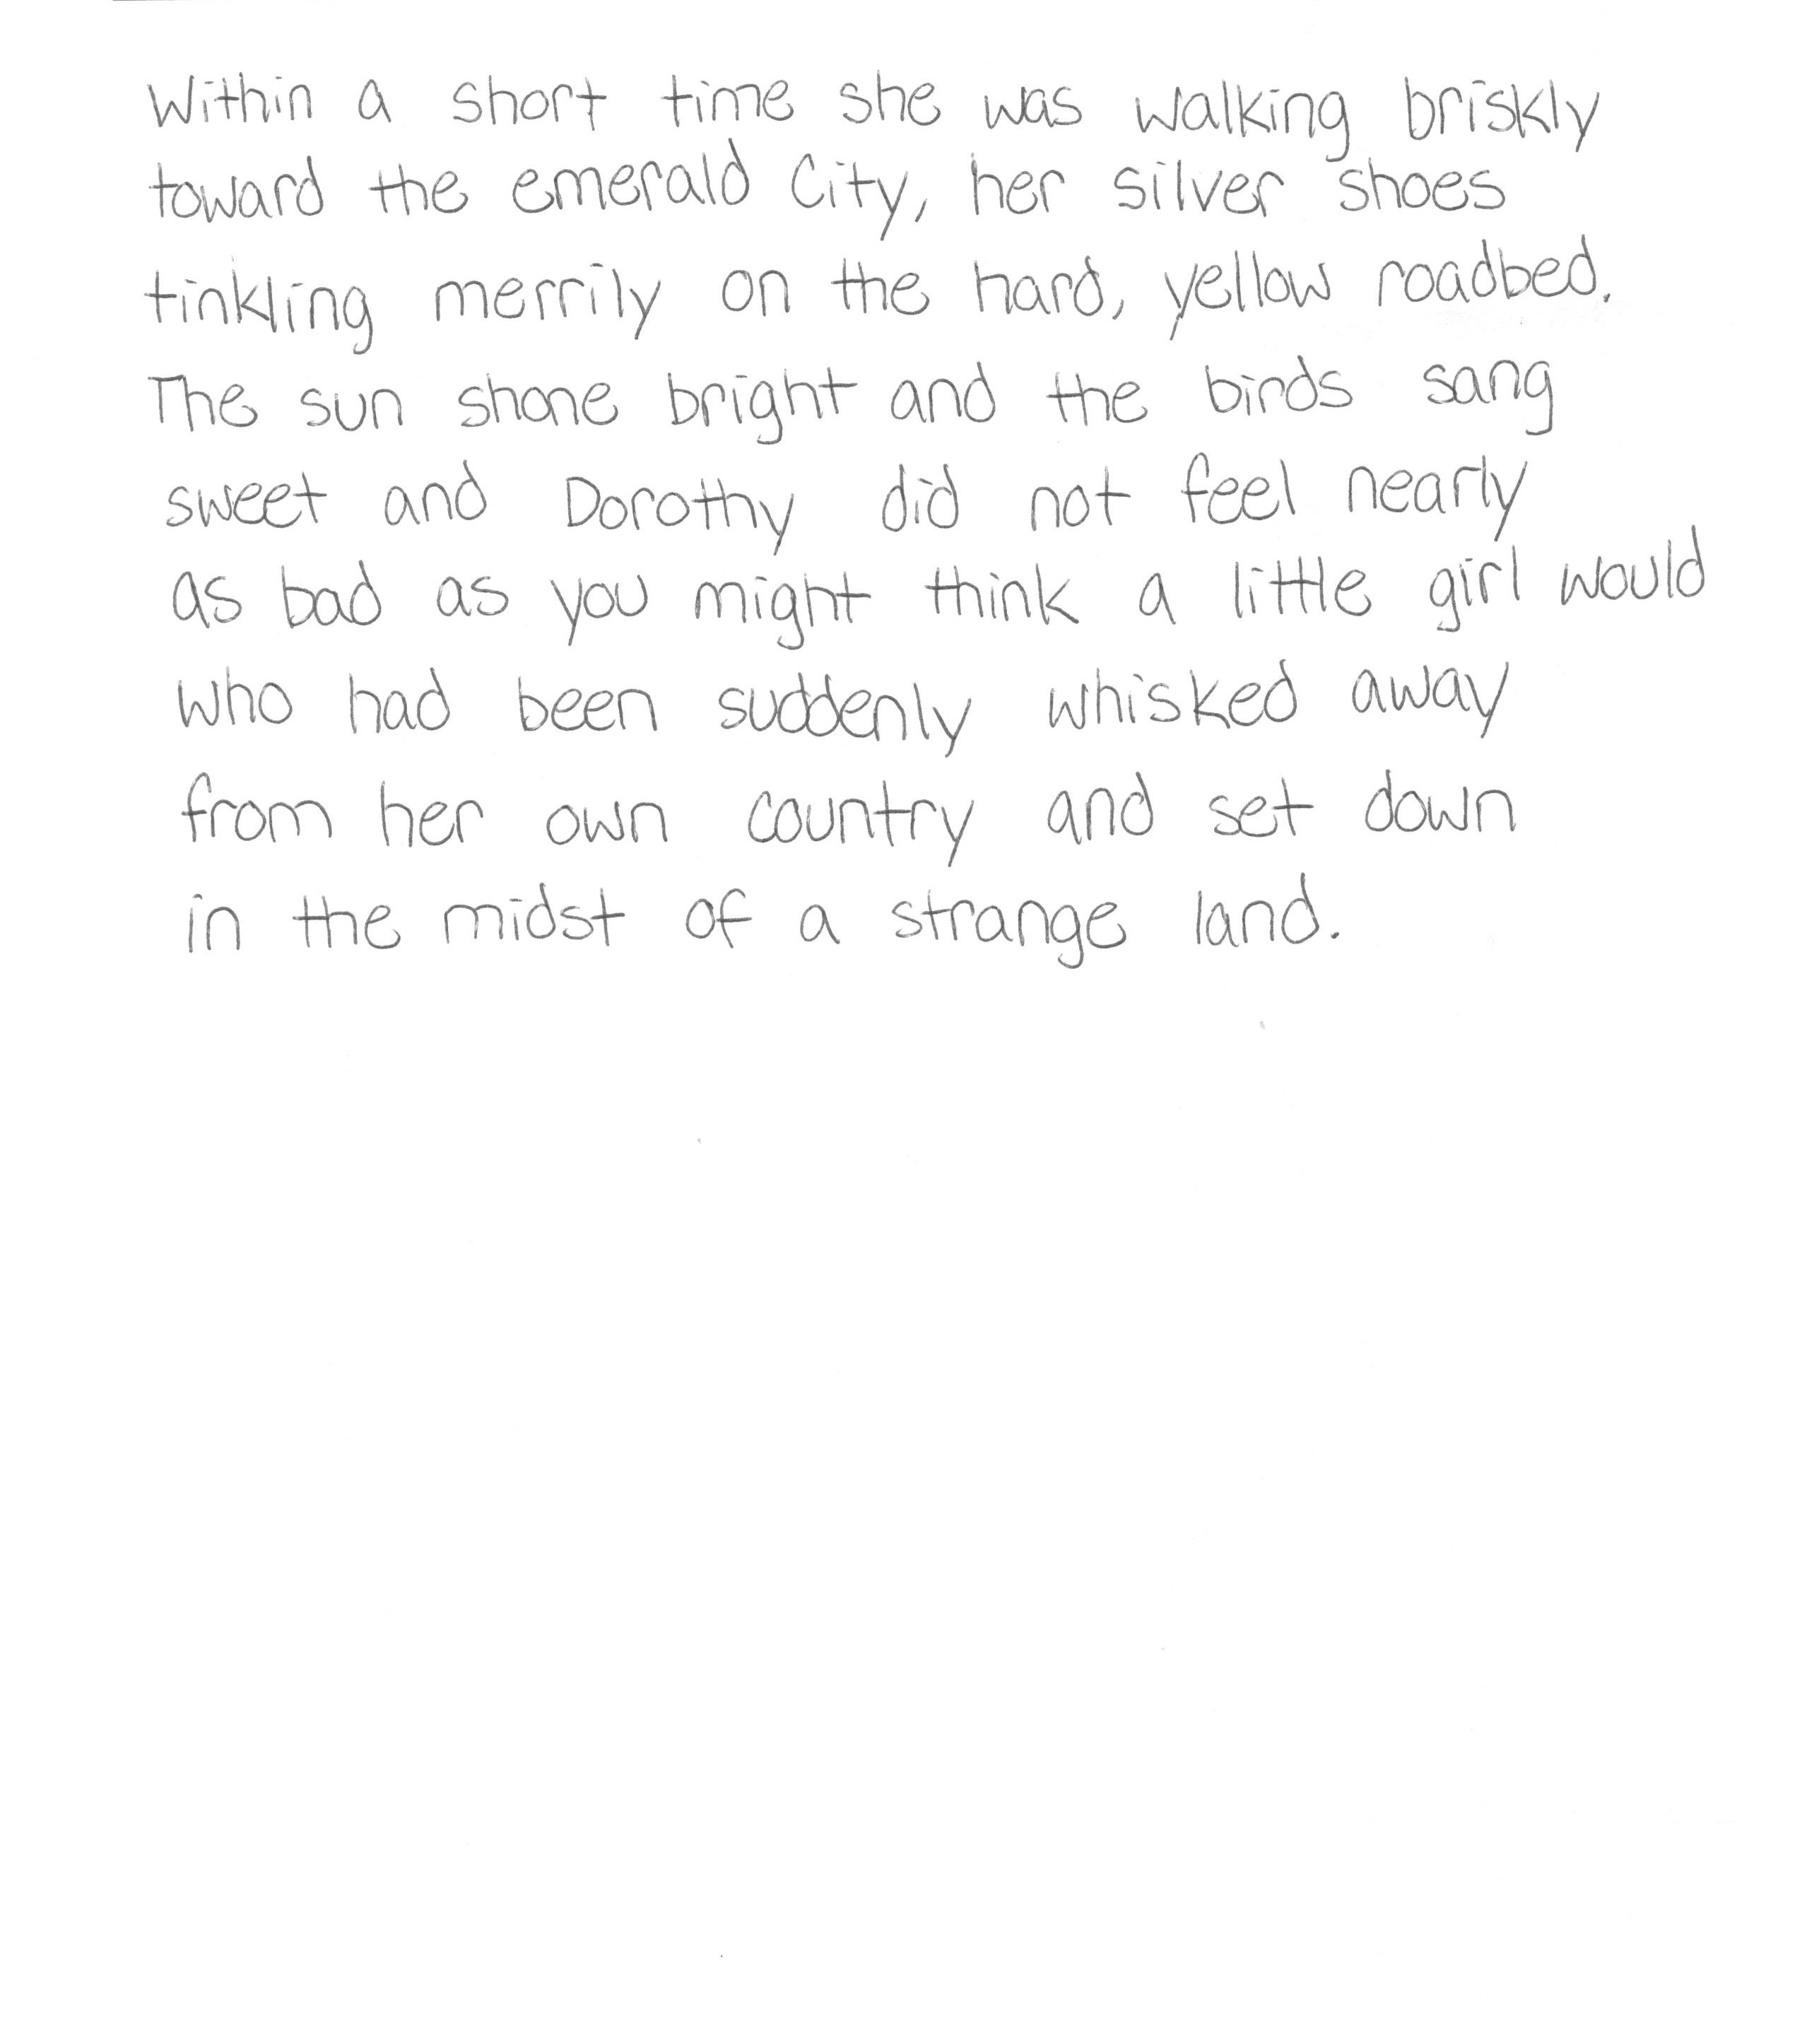 Within a short time she was walking briskly
toward the emerald City, her silver shoes
tinkling merrily on the hard, yellow roadbed.
The sun shone bright and the birds sang
sweet and Dorothy did not feel nearly
as bad as you might think a little girl would
who had been suddenly whisked away
from her own country and set down
in the midst of a strange land.